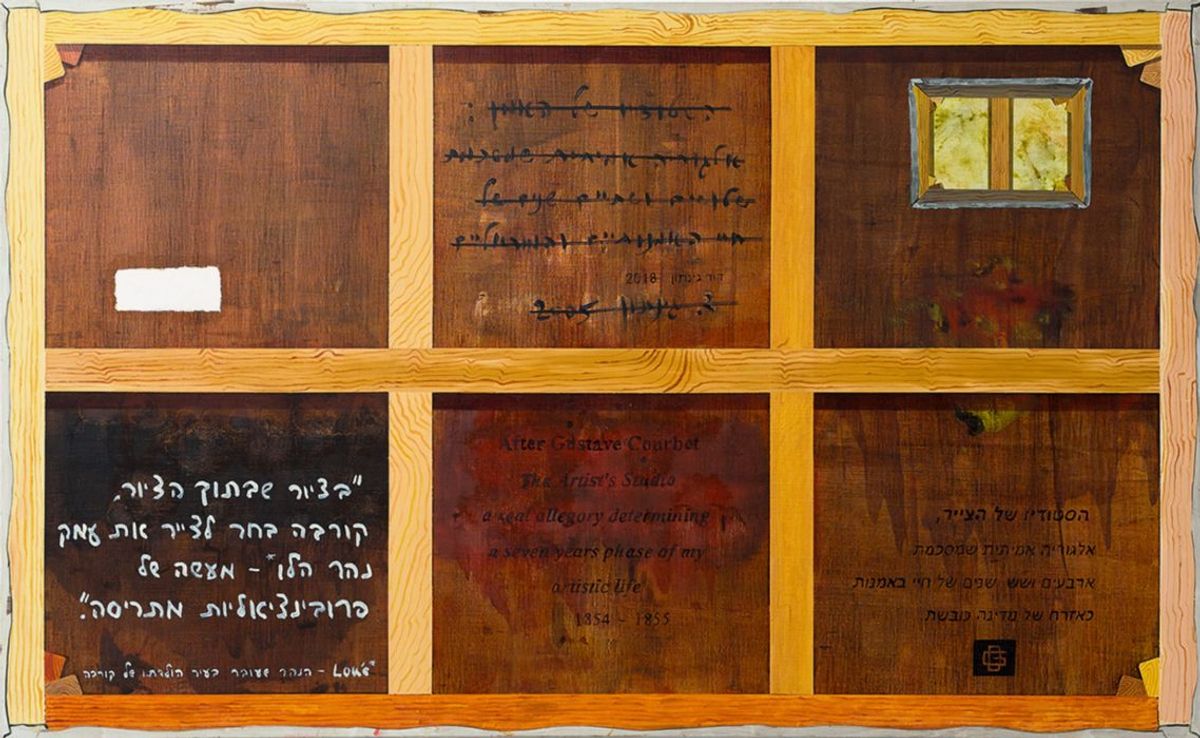 הסטודיו של האמן:
אלגוריה אמיתית שמסכמת
שלושים ושתיים שנים של
חיי האמנותיים והמוראליים
דוד גינתון 2018
ד. גינתון 2005
"בציור שבתוך הציור,
קורבה בחר לצייר את עמק
נהר הלו* – מעשה של
פרובינציאליות מתריסה."
*Loue – הנהר שעובר בעיר הולדתו של קורבה
After Gustave Courbet
The Artist's Studio
a real allegory determining
a seven years phase of my
artistic life
1854 - 1855
הסטודיו של הצייר,
אלגוריה אמיתית שמסכמת
ארבעים ושש שנים של חיי באמנות
כאזרח של מדינה כובשת.